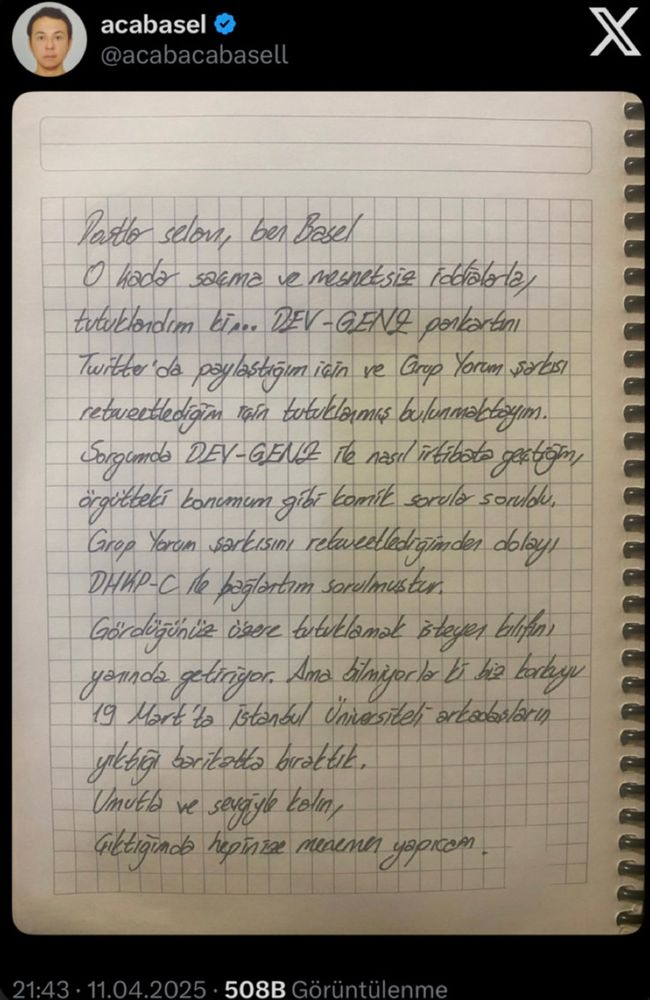 acabasel
@acabacabasell
X
Dostlar selam, ben Basel
O kadar saçma ve mesnetsiz iddialarla,
tutuklandım ki... DEV-GENÇ pankartını
Twitter'da paylaştığım için ve Grup Yorum şarkısı
retweetlediğim için tutuklanmış bulunmaktayım.
Sorgumda DEV-GENÇ ile nasıl irtibata geçtiğim,
örgütteki konumum gibi komik sorular soruldu.
Grup Yorum şarkısını retweetlediğimden dolayı
DHKP-C ile bağlantım sorulmuştur.
Gördüğünüz üzere tutuklamak isteyen kılıfını
yanında getiriyor. Ama bilmiyorlar ki biz korkuyu
19 Mart'ta İstanbul Üniversiteli arkadaşların
yıktığı barikatta bıraktık.
Umutla ve sevgiyle kalın,
Çıktığımda hepinize menemen yapıcam.
21:43 · 11.04.2025 · 508B Görüntülenme